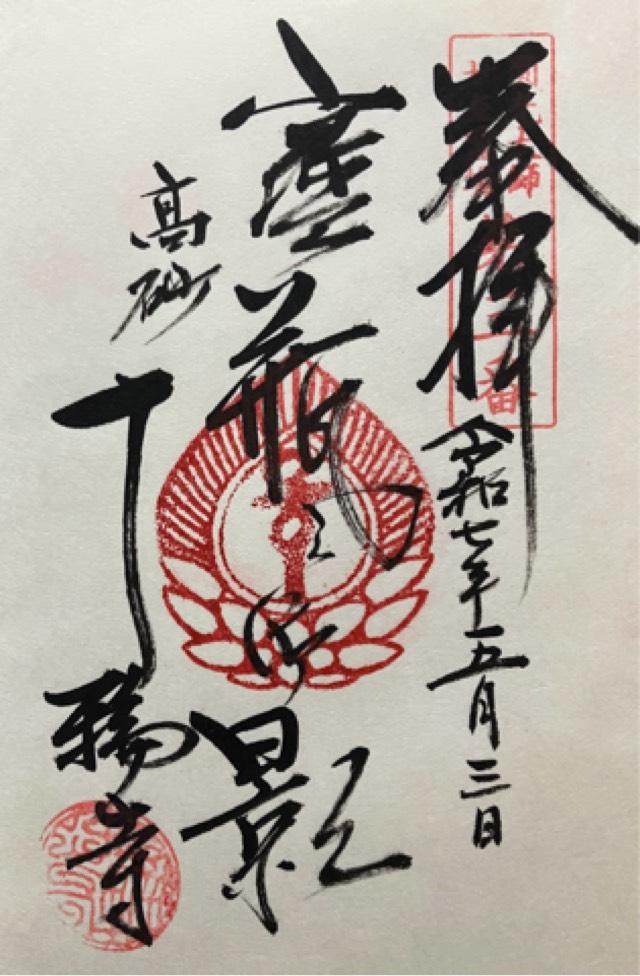 奉拝
令和七年五月三日
寳瓶之御影
高砂
十輪寺